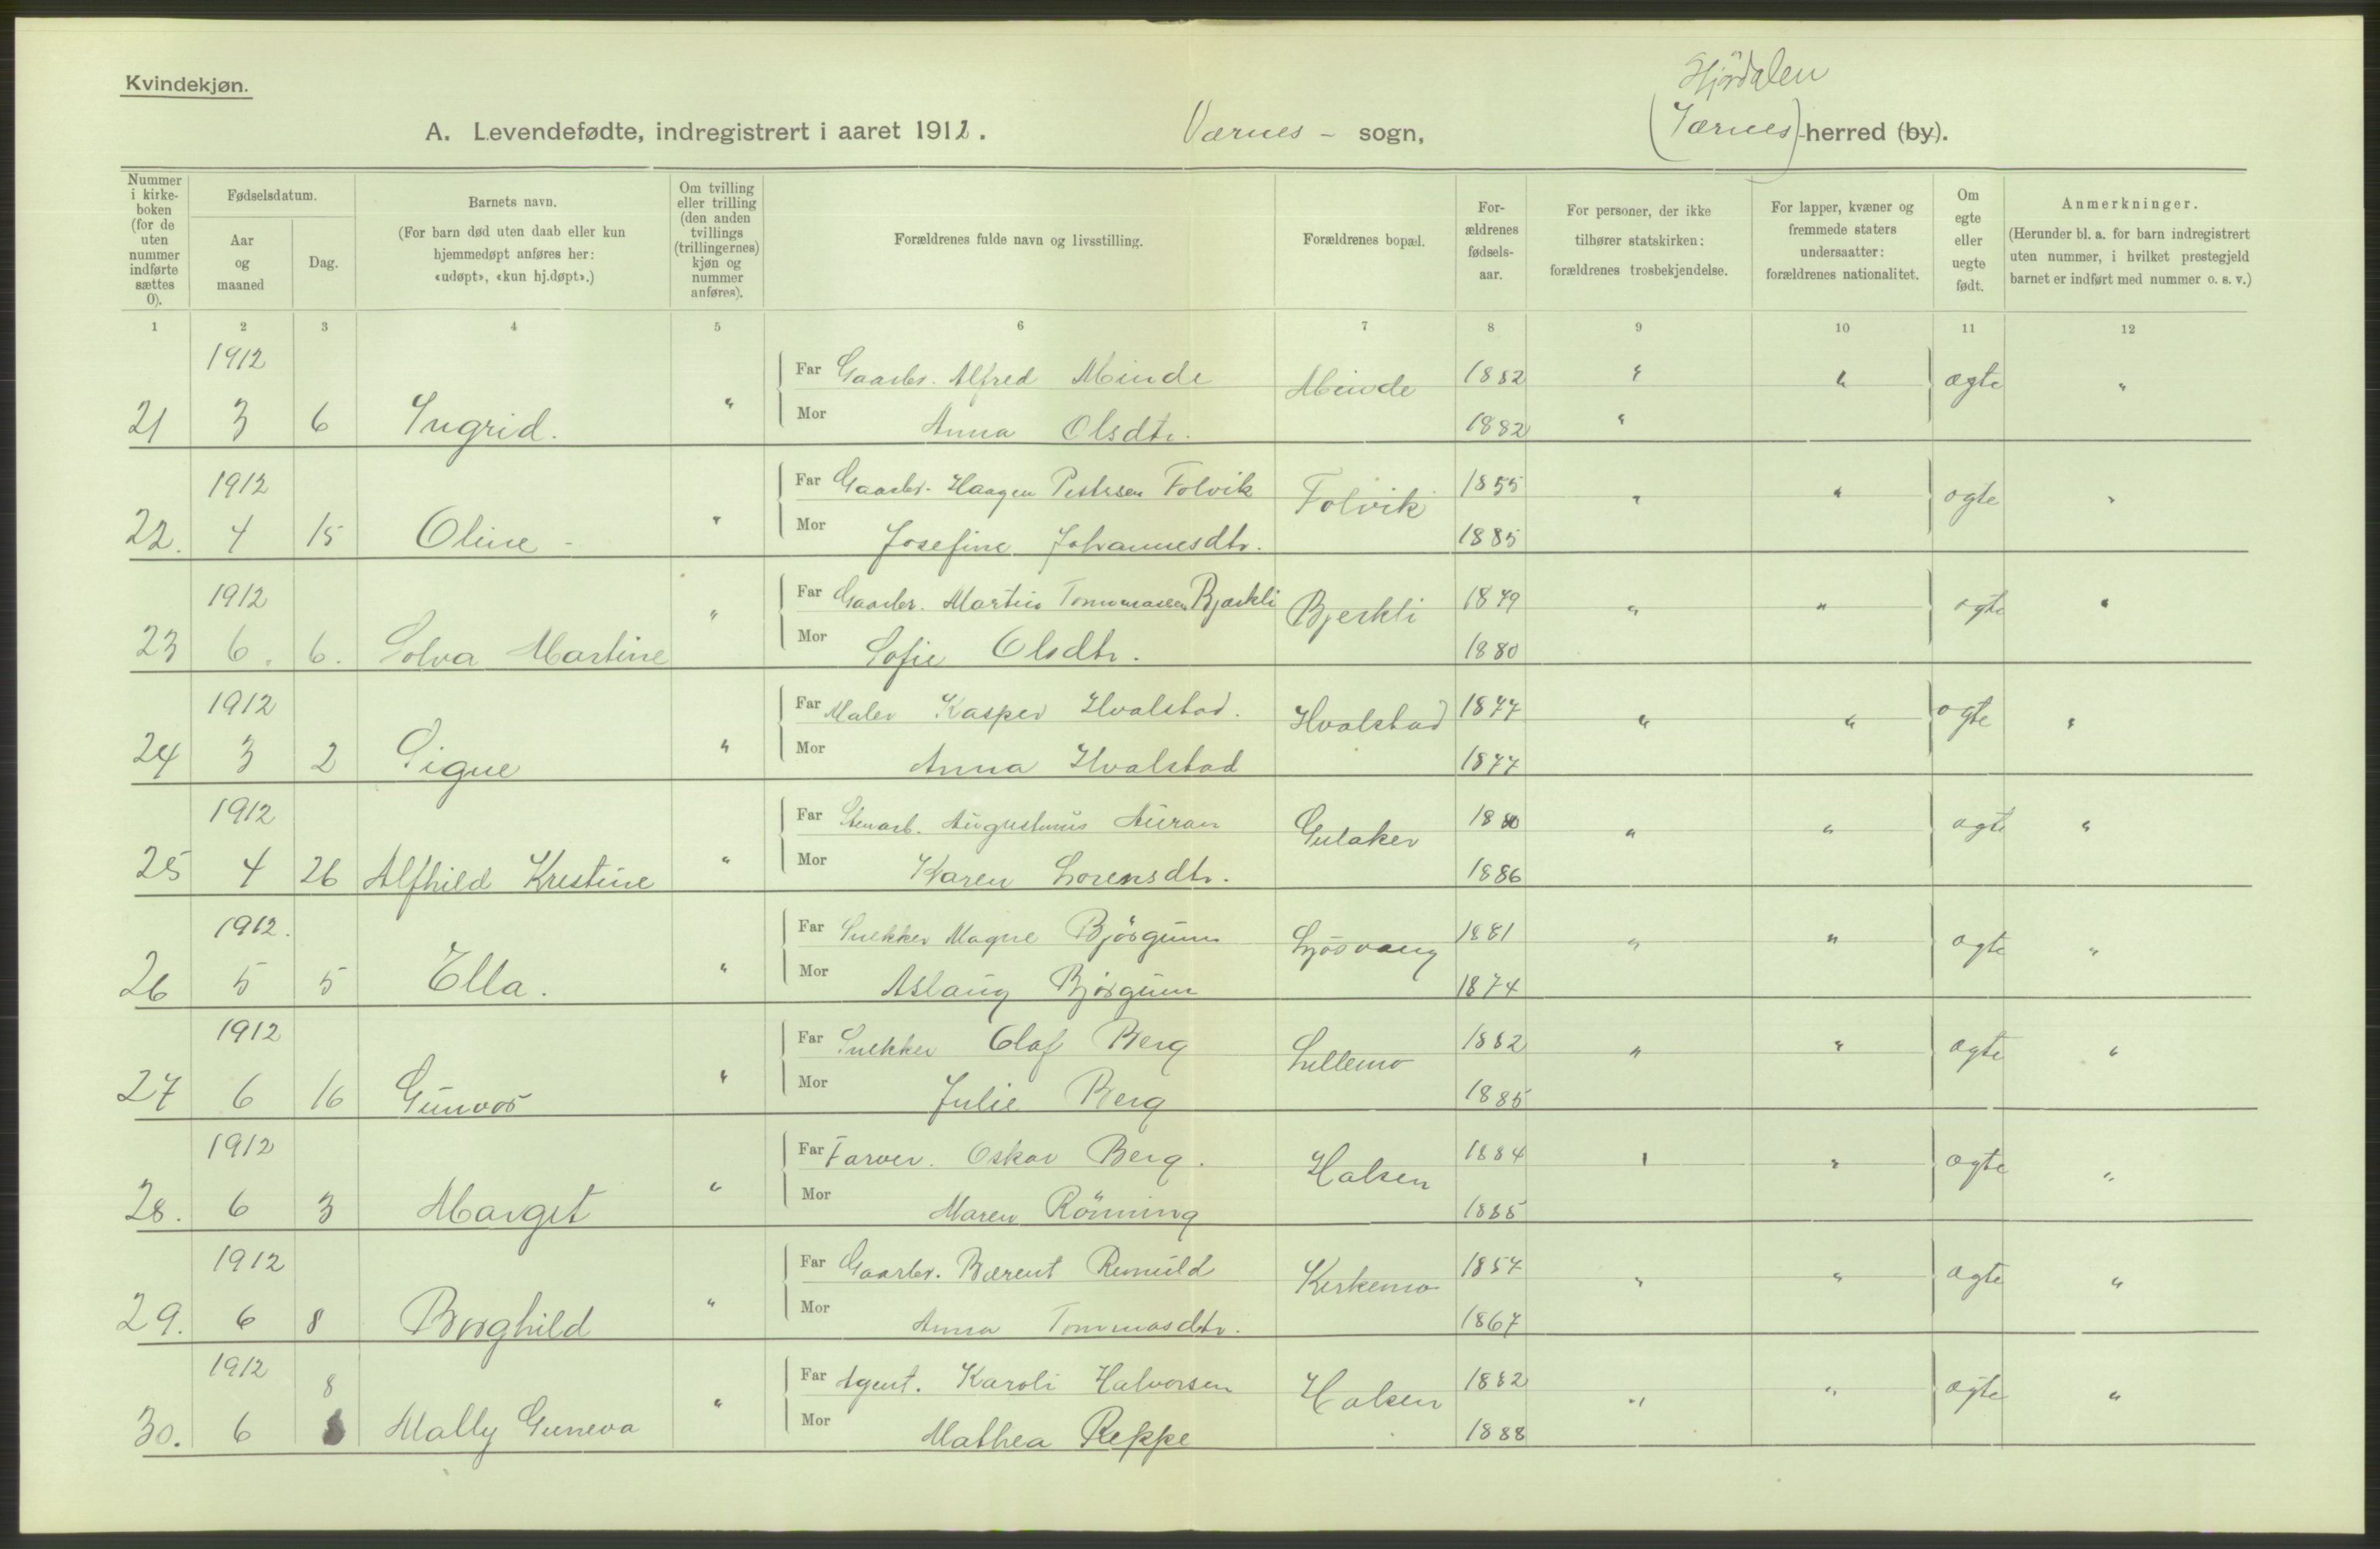 Kvindekjøn.
Stjørdalen
A. Levendefødte, indregistrert i aaret 1912. Værnes - sogn, (Værnes)-herred (by).
Nummer i kirke-boken (for de uten nummer indførte sættes 0).
Fødselsdatum.
Aar og maaned
Dag.
Barnets navn.
(For barn død uten daab eller kun hjemmedøpt anføres her: «udøpt», «kun hj.døpt».)
Om tvilling eller trilling (den anden tvillings (trillingernes) kjøn og nummer anføres).
Forældrenes fulde navn og livsstilling.
Forældrenes bopæl.
For-ældrenes fødsels-aar.
For personer, der ikke tilhører statskirken: forældrenes trosbekjendelse.
For lapper, kvæner og fremmede staters undersaatter: forældrenes nationalitet.
Om egte eller uegte født.
Anmerkninger.
(Herunder bl. a. for barn indregistrert uten nummer, i hvilket prestegjeld barnet er indført med nummer o. s. v.)
1 2 3 4 5 6 7 8 9 10 11 12
1912 Far Gaarbr. Alfred Minde Minde 1882 " " ægte "
21 3 6 Ingrid. " Mor Anna Olsdtr. 1882 "
1912 Far Gaarbr. Haagen Petersen Folvik Folvik 1855 " " ægte "
22. 4 15 Oline - " Mor Josefine Johannesdtr. 1885
1912 Far Gaarbr. Martin Tommassen Bjerkli Bjerkli 1879 " " ægte "
23 6. 6. Solva Martine " Mor Sofie Olsdtr. 1880
1912 Far Maler Kasper Hvalstad. Hvalstad 1877 " " ægte "
24 3 2 Signe " Mor Anna Hvalstad 1877
1912 Far Stenarb. Augustinus Auran Gulaker 1880 " " ægte "
25 4 26 Alfhild Kristine " Mor Karen Lorensdtr. 1886
1912. Far Snekker Magne Bjørgum 1881 " " ægte "
26 5 5 Ella. " Mor Aslaug Bjørgum 1874
1912 Far Snekker Olaf Berg Lillemo 1882 " " ægte "
27 6 16 Gunvor " Mor Julie Berg 1885
1912 Far Farver. Oskar Berg. Halsen 1884 " " ægte "
28. 6 3 Margit " Mor Maren Rönning 1885
1912 Far Gaarbr. Bærent Remuld Kirkemo 1857 " " ægte "
29. 6 8 Borghild " Mor Anna Tommasdtr. 1867
1912 8 Far Agent. Karoli Halvorsen Halsen 1882 " " ægte "
30. 6 8 Mally Guneva " Mor Mathea Reppe 1888